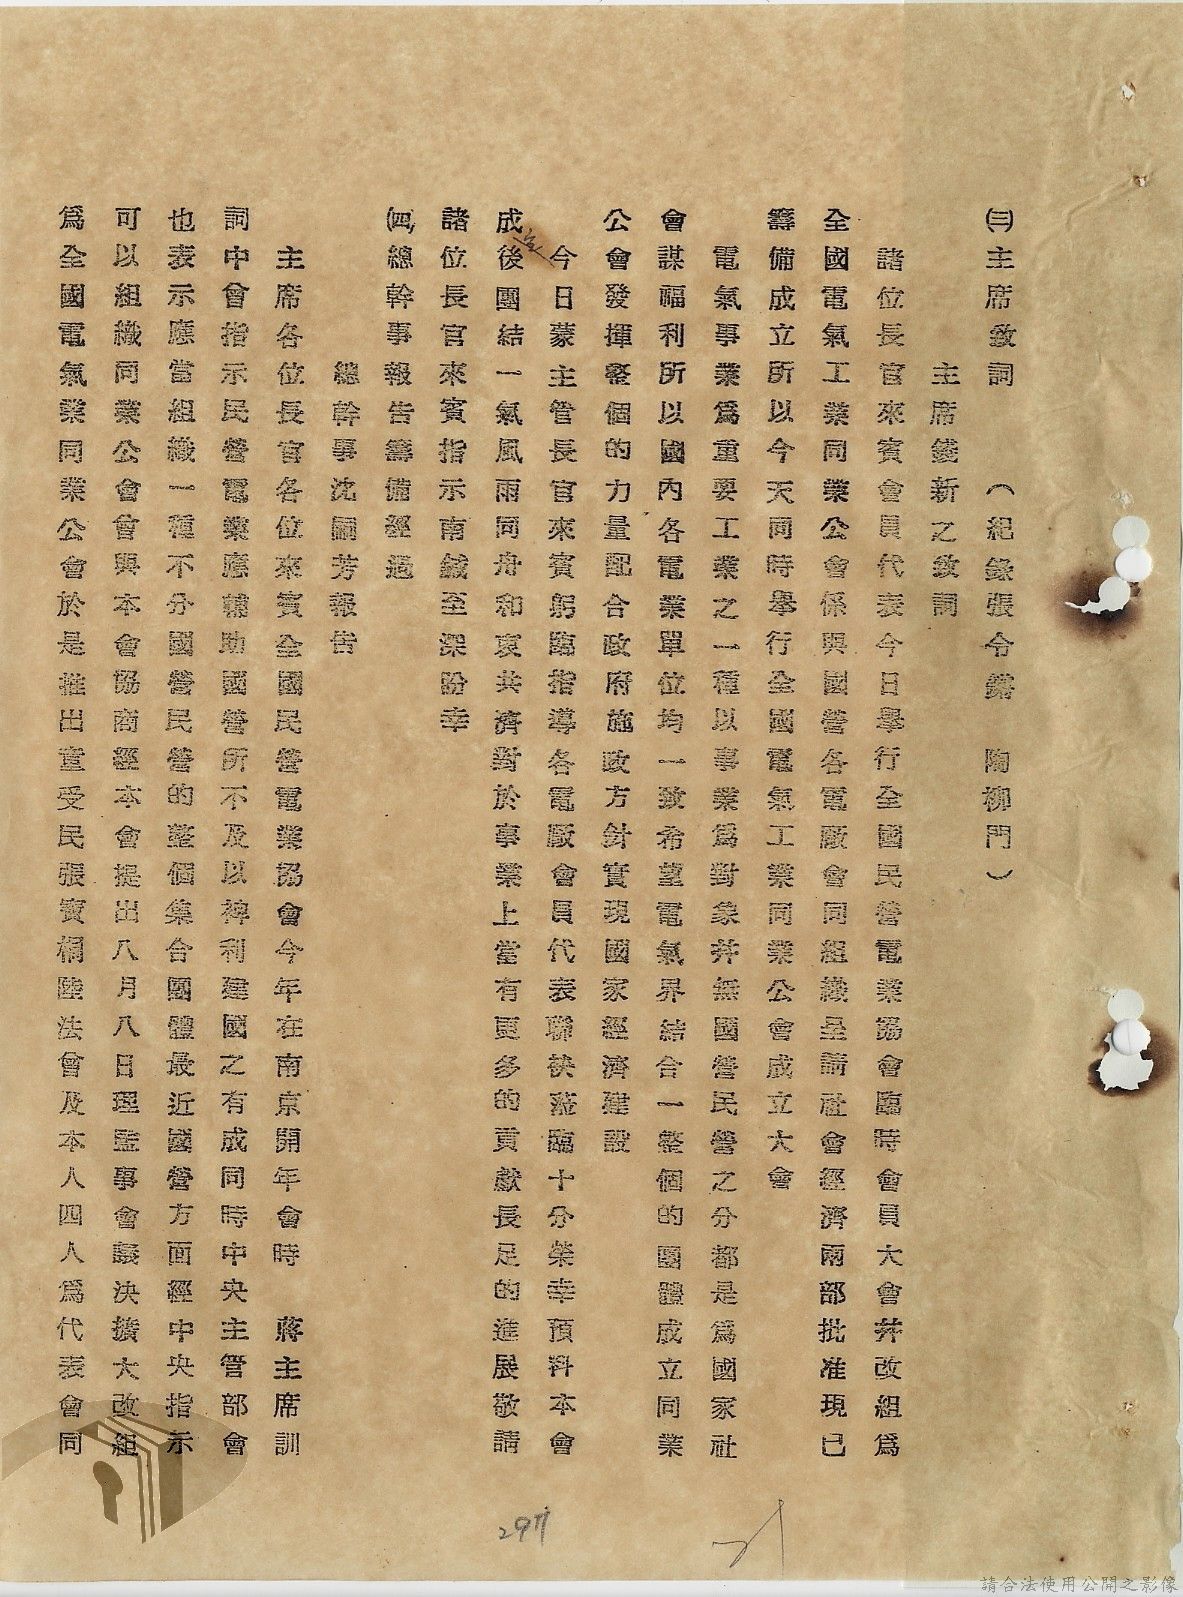 ㈢主席致詞　　（紀錄張令鏘　陶柳門）
主席錢新之致詞
諸位長官來賓會員代表今日舉行全國民營電業協會臨時會員大會并改組爲
全國電氣工業同業公會係與國營各電廠會同組織呈請社會經濟兩部批准現已
籌備成立所以今天同時舉行全國電氣工業同業公會成立大會
電氣事業爲重要工業之一種以事業爲對象并無國營民營之分都是爲國家社
會謀福利所以國內各電業單位均一致希望電氣界結合一整個的團體成立同業
公會發揮整個的力量配合政府施政方針實現國家經濟建設
今日蒙主管長官來賓躬臨指導各電廠會員代表聯袂蒞臨十分榮幸預料本會
成立後團結一氣風雨同舟和衷共濟對於事業上當有更多的貢獻長足的進展敬請
諸位長官來賓指示南鍼至深盼幸
㈣總幹事報告籌備經過
總幹事沈嗣芳報告
主席各位長官各位來賓全國民營電業協會今年在南京開年會時　蔣主席訓
詞中曾指示民營電業應輔助國營所不及以裨利建國之有成同時中央主管部會
也表示應當組織一種不分國營民營的整個集合團體最近國營方面經中央指示
可以組織同業公會曾與本會協商經本會提出八月八日理監事會議決擴大改組
爲全國電氣業同業公會於是推出童受民張寶桐陸法曾及本人四人爲代表會同
297
請合法使用公開之影像